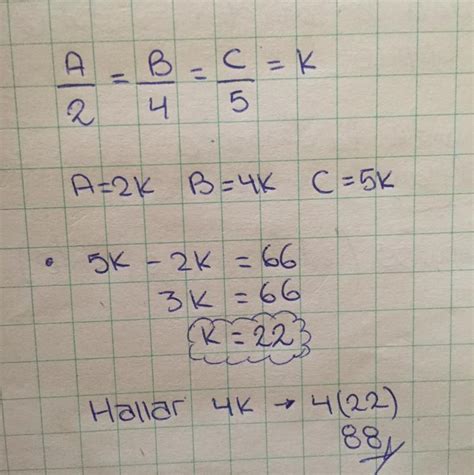 A/2 = B/4 = C/5 = K
A=2K B=4K C=5K
• 5K - 2K = 66
3K = 66
K = 22
Hallar 4K → 4(22)
88